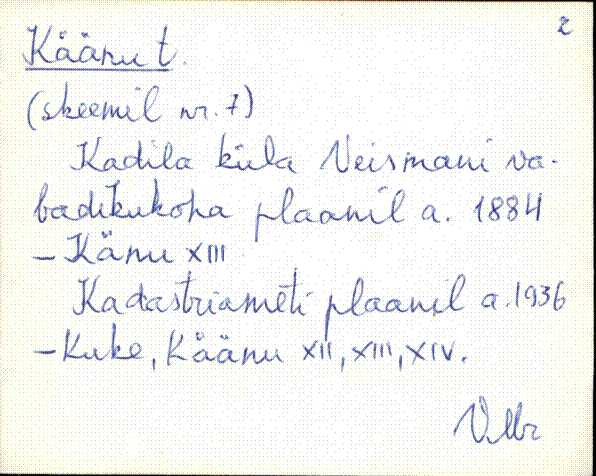 2
Käänu t.
(skeemil nr. 7)
Kadila küla Veismani va-
badikukoha plaanil a. 1884
- Känu XIII
Kadastriameti plaanil a. 1936
- Kuke, Käänu XII, XIII, XIV.